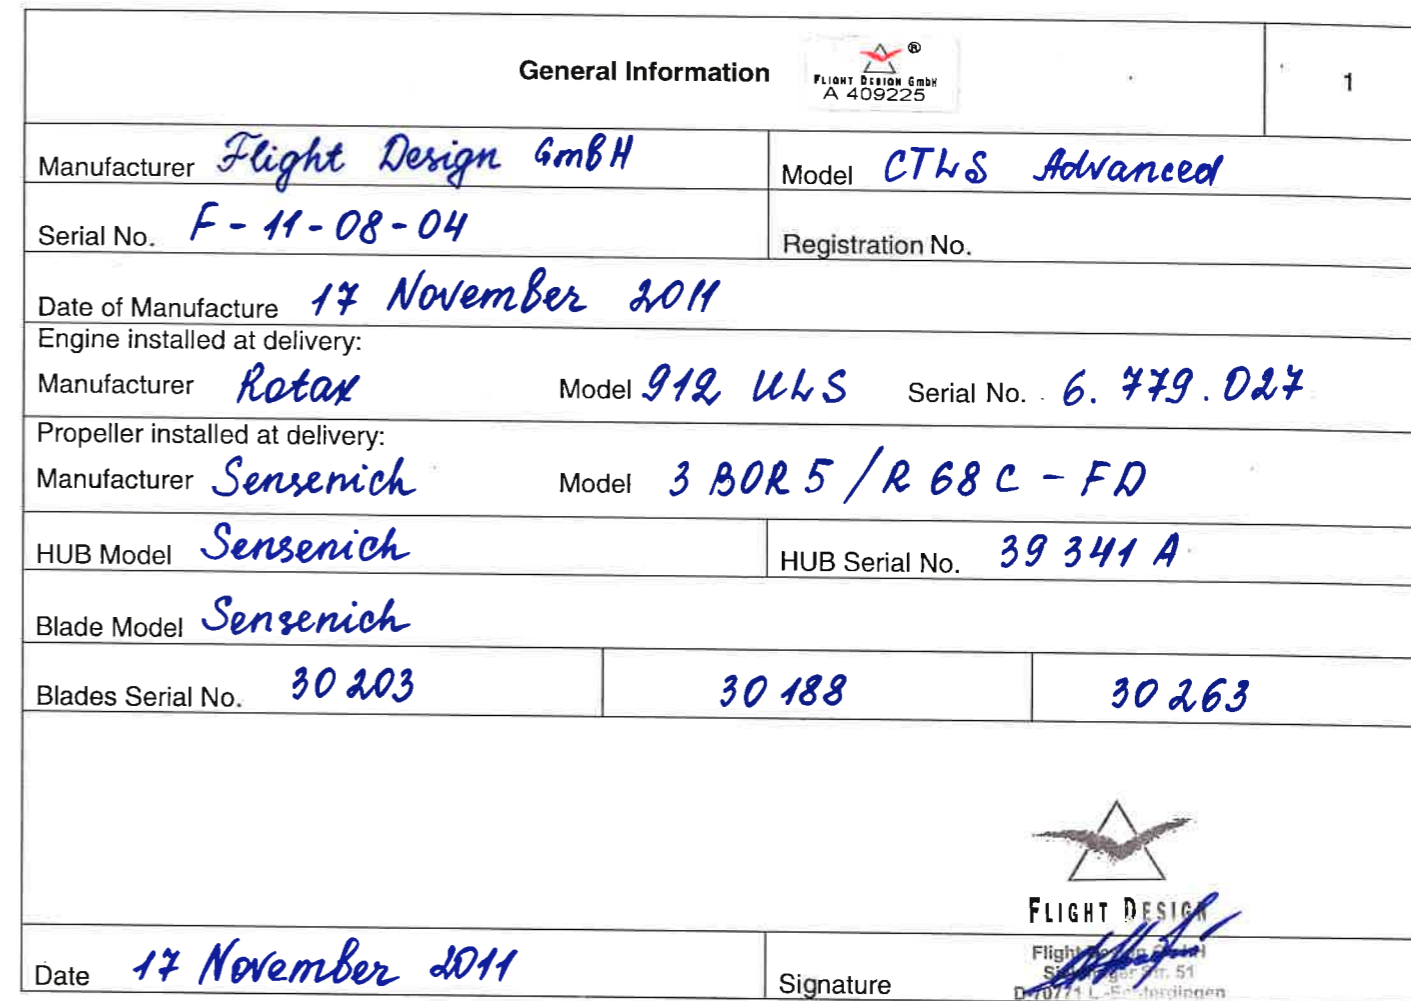 General Information
®
FLIGHT DESIGN GmbH
A 409225
1
Manufacturer Flight Design GmBH
Model CTLS Advanced
Serial No. F - 11 - 08 - 04
Registration No.
Date of Manufacture 17 November 2011
Engine installed at delivery:
Manufacturer Rotax Model 912 ULS Serial No. 6. 779. 027
Propeller installed at delivery:
Manufacturer Sensenich Model 3 B0R 5 / R 68 C - FD
HUB Model Sensenich
HUB Serial No. 39 341 A
Blade Model Sensenich
Blades Serial No. 30 203 30 188 30 263
FLIGHT DESIGN
Flight
Str. 51
D-70771
Date 17 November 2011
Signature